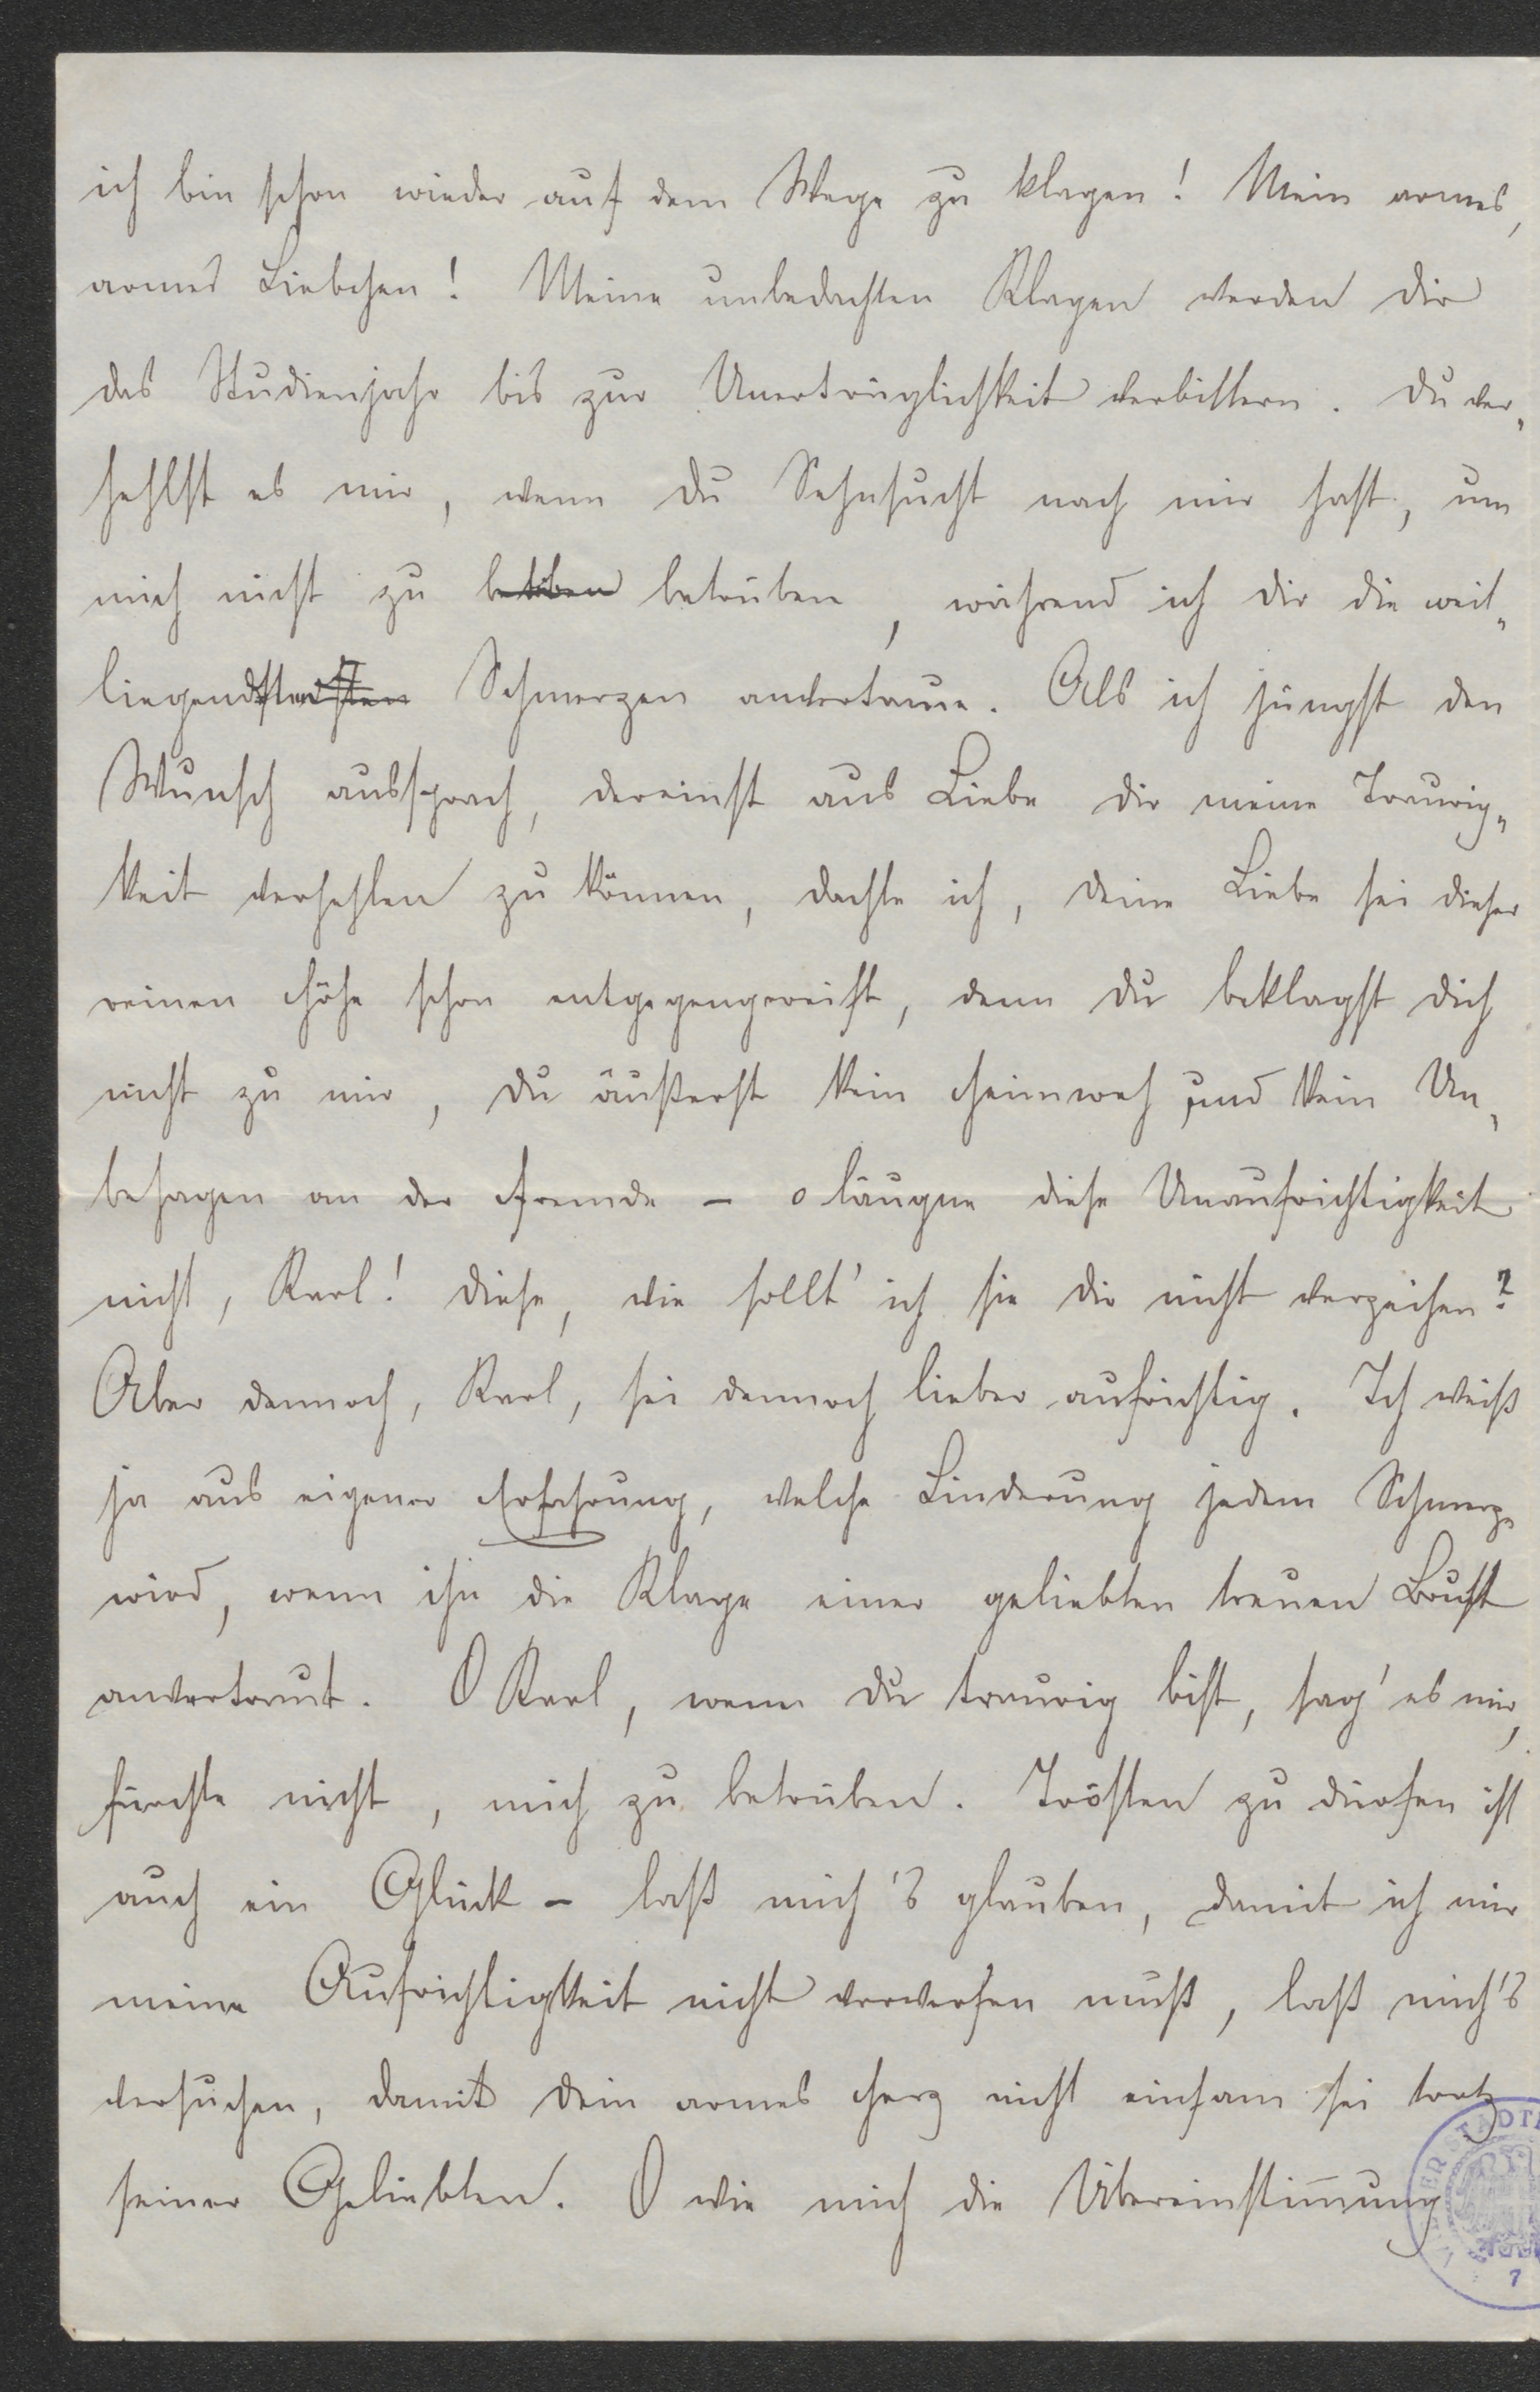 ich bin schon wieder auf dem Wege zu klagen! Mein armes,
armes Liebchen! Meine unbedachten Klagen werden dir
das Studienjahr bis zur Unerträglichkeit verbittern. Du ver„
hehlst es mir, wenn du Sehnsucht nach mir hast, um
mich nicht zu betüben betrüben, während ich dir die weit„
liegendsten Schmerzen anvertraue. Als ich jüngst den
Wunsch aussprach, dereinst aus Liebe dir meine Traurig„
keit verhehlen zu können, dachte ich, deine Liebe sei dieser
reinen Höhe schon entgegengereift, denn du beklagst dich
nicht zu mir, du äußerst kein Heimweh und kein Un„
behagen an der Fremde – o läugne diese Unaufrichtigkeit
nicht, Karl! Diese, wie sollt' ich sie dir nicht verzeihen?
Aber dennoch, Karl, sei dennoch lieber aufrichtig. Ich weiß
ja aus eigener Erfahrung, welche Linderung jedem Schmerze
wird, wenn ihn die Klage einer geliebten treuen Brust
anvertraut. O Karl, wenn du traurig bist, sag' es mir,
fürchte nicht, mich zu betrüben. Trösten zu dürfen ist
auch ein Glück – laß mich's glauben, damit ich mir
meine Aufrichtigkeit nicht verwerfen muß, laß mich's
versuchen, damit dein armes Herz nicht einsam sei trotz
seiner Geliebten. O wie mich die Übereinstim̄ung